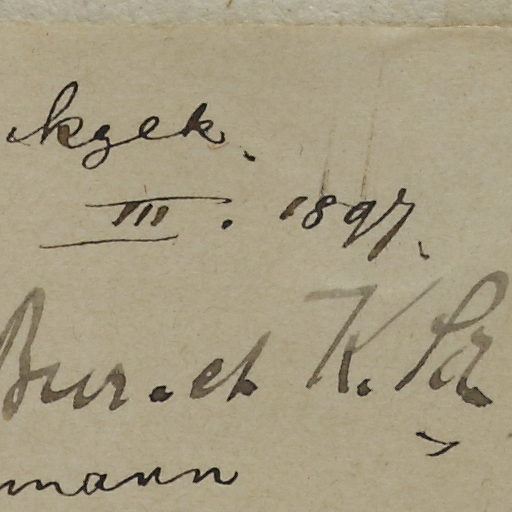 kzek.
III. 1897.
Bur. et K. Sz
mann